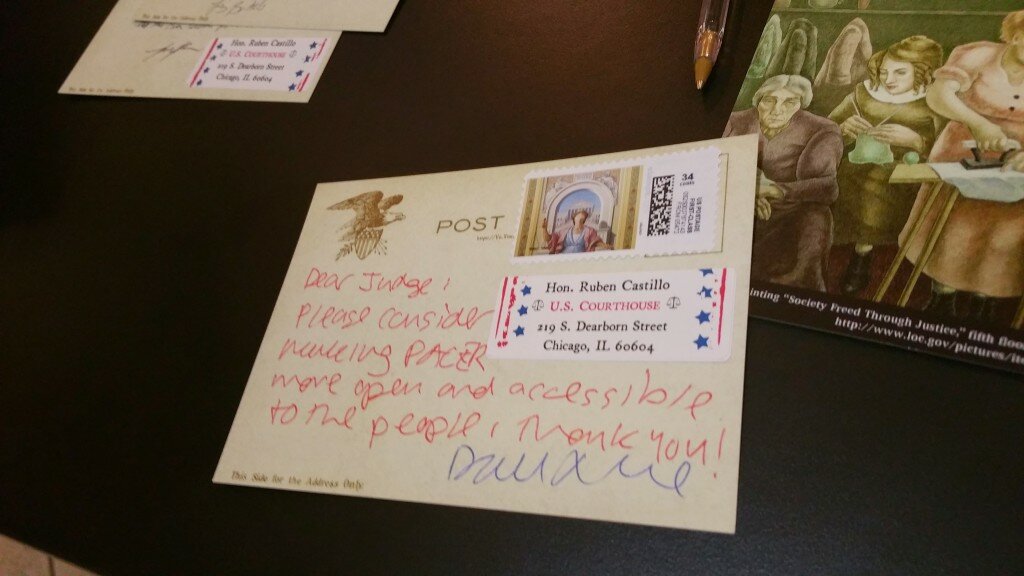 This Side for the Address Only
Hon. Ruben Castillo
U.S. COURTHOUSE
219 S. Dearborn Street
Chicago, IL 60604
This Side for the Address Only
POST
34
cents
US POSTAGE
FIRST-CLASS
Hon. Ruben Castillo
U.S. COURTHOUSE
219 S. Dearborn Street
Chicago, IL 60604
Dear Judge,
Please consider
making PACER
more open and accessible
to the people, Thank you!
This Side for the Address Only
inting "Society Freed Through Justice," fifth floo
http://www.loc.gov/pictures/